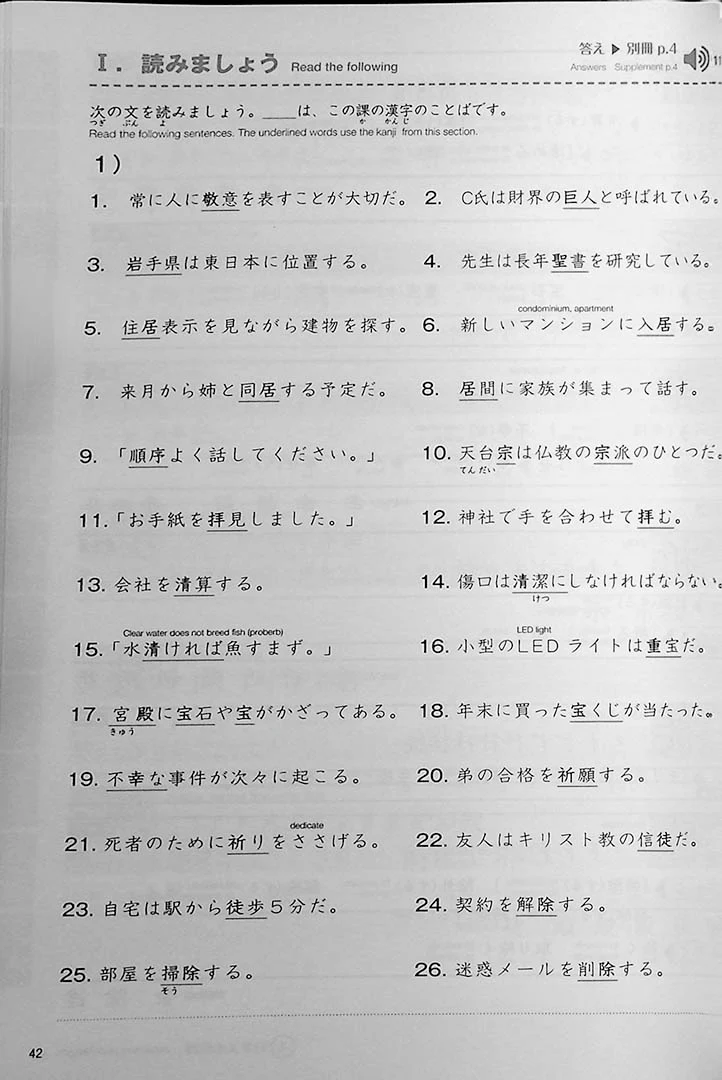 Ⅰ. 読みましょう Read the following
答え ▶ 別冊 p.4
Answers Supplement p.4
11
次の文を読みましょう。____は、この課の漢字のことばです。
つぎ ぶん よ か かんじ
Read the following sentences. The underlined words use the kanji from this section.
1)
1. 常に人に敬意を表すことが大切だ。
2. C氏は財界の巨人と呼ばれている。
3. 岩手県は東日本に位置する。
4. 先生は長年聖書を研究している。
5. 住居表示を見ながら建物を探す。
condominium, apartment
6. 新しいマンションに入居する。
7. 来月から姉と同居する予定だ。
8. 居間に家族が集まって話す。
9. 「順序よく話してください。」
10. 天台宗は仏教の宗派のひとつだ。
てんだい
11. 「お手紙を拝見しました。」
12. 神社で手を合わせて拝む。
13. 会社を清算する。
14. 傷口は清潔にしなければならない。
けつ
Clear water does not breed fish (proberb)
15. 「水清ければ魚すまず。」
LED light
16. 小型のLEDライトは重宝だ。
17. 宮殿に宝石や宝がかざってある。
きゅう
18. 年末に買った宝くじが当たった。
19. 不幸な事件が次々に起こる。
20. 弟の合格を祈願する。
dedicate
21. 死者のために祈りをささげる。
22. 友人はキリスト教の信徒だ。
23. 自宅は駅から徒歩5分だ。
24. 契約を解除する。
25. 部屋を掃除する。
そう
26. 迷惑メールを削除する。
42